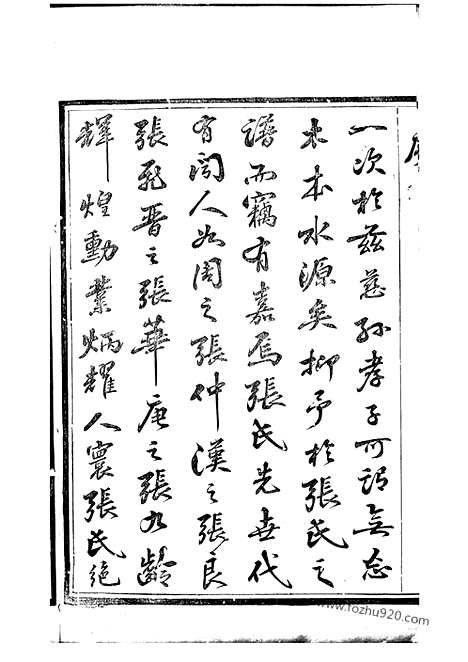 一次於茲慈孫孝子可謂無忘
木本水源矣抑予於張氏之
譜而竊有嘉焉張氏先世代
有聞人如周之張仲漢之張良
張飛晉之張華唐之張九齡
輝煌勳業炳耀人寰張氏絕
www.fozhu920.com